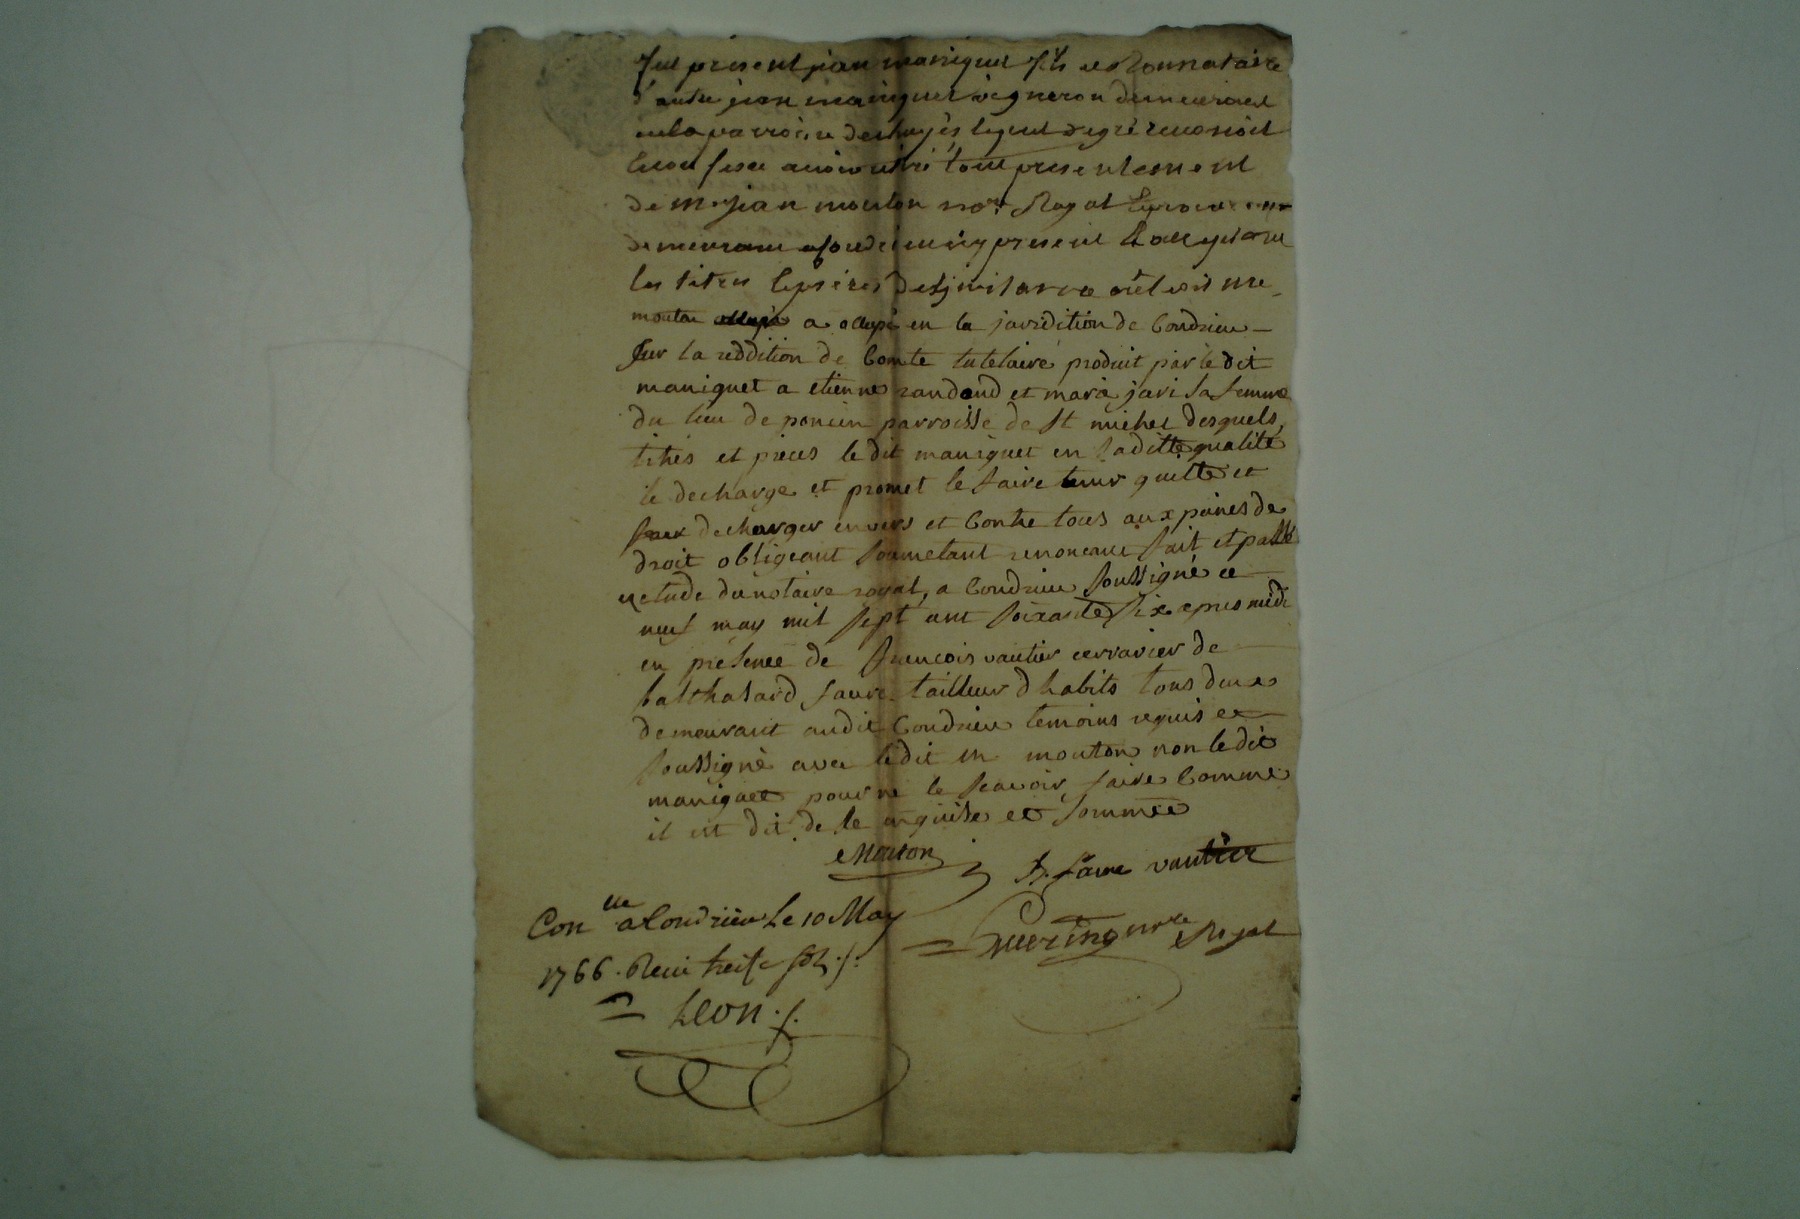 fut present jean maniguet fils et donnataire
d'autre jean maniguet vigneron demeurant
en la parroisse deshayes lequel de gré reconnoit
et confesse avoir retiré tout presentement
de me jean mouton nore Royal et procureur
demeurant a condrieu icy present et acceptant
les titres et pieces desquels led. me
mouton a occupé en la juridition de Condrieu
sur la reddition de Comte tutelaire produit par le dit
maniguet a etienne randond et maria jari sa femme
du lieu de poncin parroisse de st michel desquels
titres et pieces le dit maniguet en sa ditte qualité
le decharge et promet le faire tenir quitte et
decharger envers et Contre tous aux peines de
droit obligeant soumetant renonceant fait et passé
etude du notaire royal, a Condrieu soussigné ce
neuf may mil sept cent soixante six apres midi
en presence de francois vautier et de
balthasard faure tailleur d habits tous deux
demeurant audit Condrieu temoins requis et
soussigné avec le dit m mouton non le dit
maniguet pour ne le scavoir faire Comme
il et dit de le enquise et sommée
Mouton B. faure vautier
Conlle a Condrieu Le 10 May
Guerin nore Royal
1766. Recu treise sols
Leon